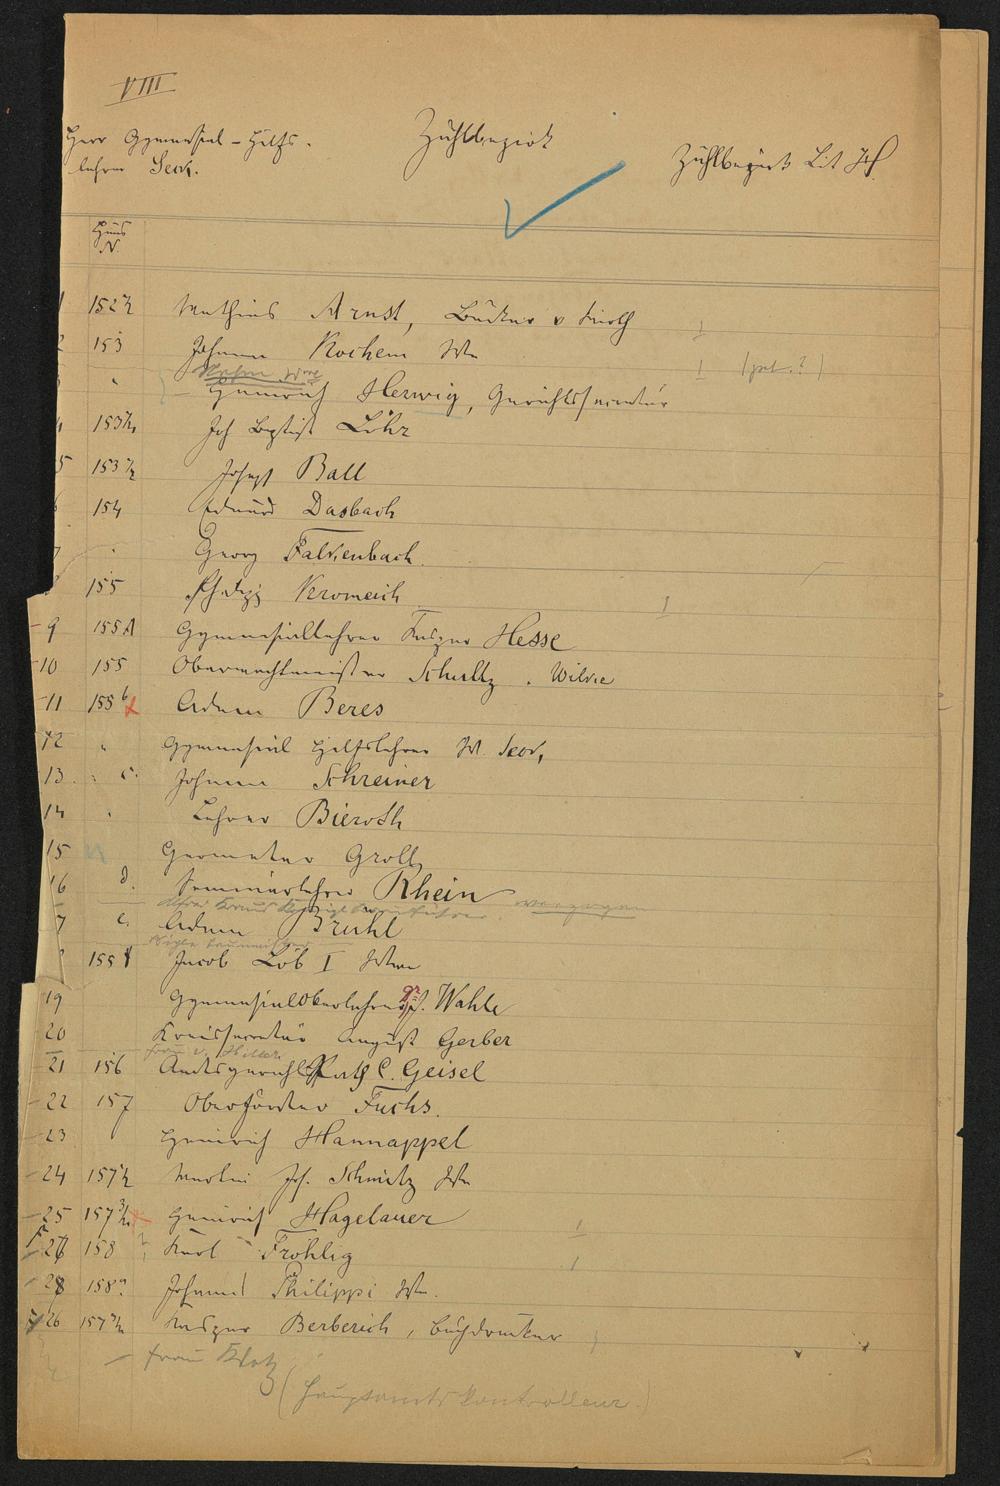 VIII
Herr Gymnasial-Hülfs-
lehrer Seck.
Zählbezirk
Zählbezirk Lit
Haus
N.
152½ Mathias Arnst, Bäcker u Wirth
153 Johann Kochem Wwe
" Heinrich Herwig, Gerichtssecretär
153 Joh Baptist Löhr
5 153 Josef Ball
154 Eduard Dasbach
" Georg Falkenbach
155 Philipp Kromeich
9 155 A Gymnasiallehrer Caspar Hesse
10 155 Oberwachtmeister Schultz
11 155 b Adam Beres
12 " Gymnasial Hülfslehrer W. Seck,
13 " c. Johann Schreiner
14 " Lehrer Bieroth
15 Geometer Groll
16 d. Seminarlehrer Rhein verzogen
7 e. Adam Bruhl
155 f Jacob Löb I Wwe
19 Gymnasialoberlehrer Wahle
20 Kreissecretär August Gerber
21 156 Amtsgerichts Rath C. Geisel
22 157 Oberförster Fuchs.
23 Heinrich Hannappel
24 157½ Joh. Schmitz Wwe
25 157 Heinrich Hagelauer
27 158 Karl Frohlig
28 158a Johann Philippi Wwe.
26 157 Caspar Berberich, Buchdrucker
Frau Klotz
(Hauptamts Kontrolleur.)